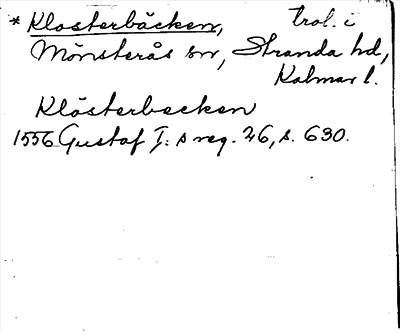 * Klosterbäcken, trol. i
Mönsterås sn, Stranda hd,
Kalmar l.
Klösterbecken
1556 Gustaf I:s reg. 26, s. 630.